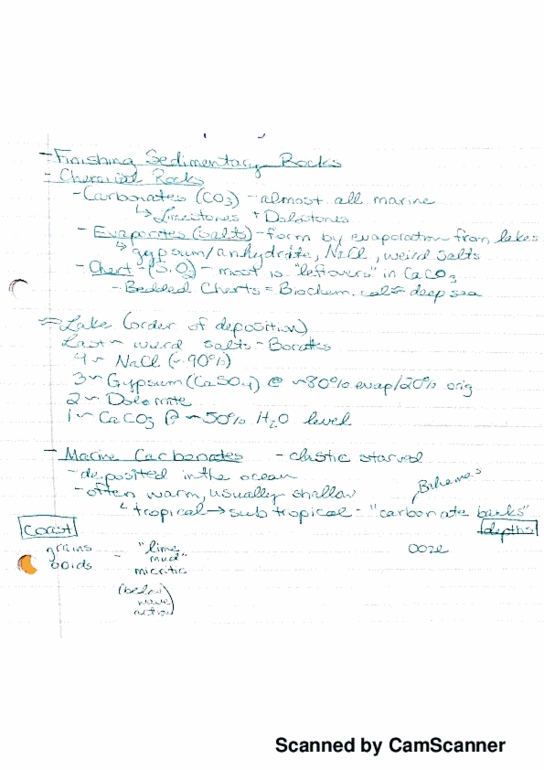 - Finishing Sedimentary Rocks
- Chemical Rocks
- Carbonates (CO3) - almost all marine
↳ Limestones + Dolostones
- Evaporites (salts) - form by evaporation from lakes
↳ gypsum/anhydrite, NaCl, weird salts
- Chert - (SiO2) - most is "leftovers" in CaCO3
- Bedded Cherts = Biochem. deep sea
Lake (order of deposition)
Last ~ weird salts - Borates
4 ~ NaCl (~90%)
3 ~ Gypsum (CaSO4) @ ~80% evap/20% orig
2 ~ Dolomite
1 ~ CaCO3 @ ~50% H2O level
- Marine Carbonates - clastic starved
- deposited in the ocean
- often warm, usually shallow
Bahamas
↳ tropical → sub tropical - "carbonate banks"
Coast
depths
grains
ooids
- "lime mud"
micritic
(below wave action)
ooze
Scanned by CamScanner